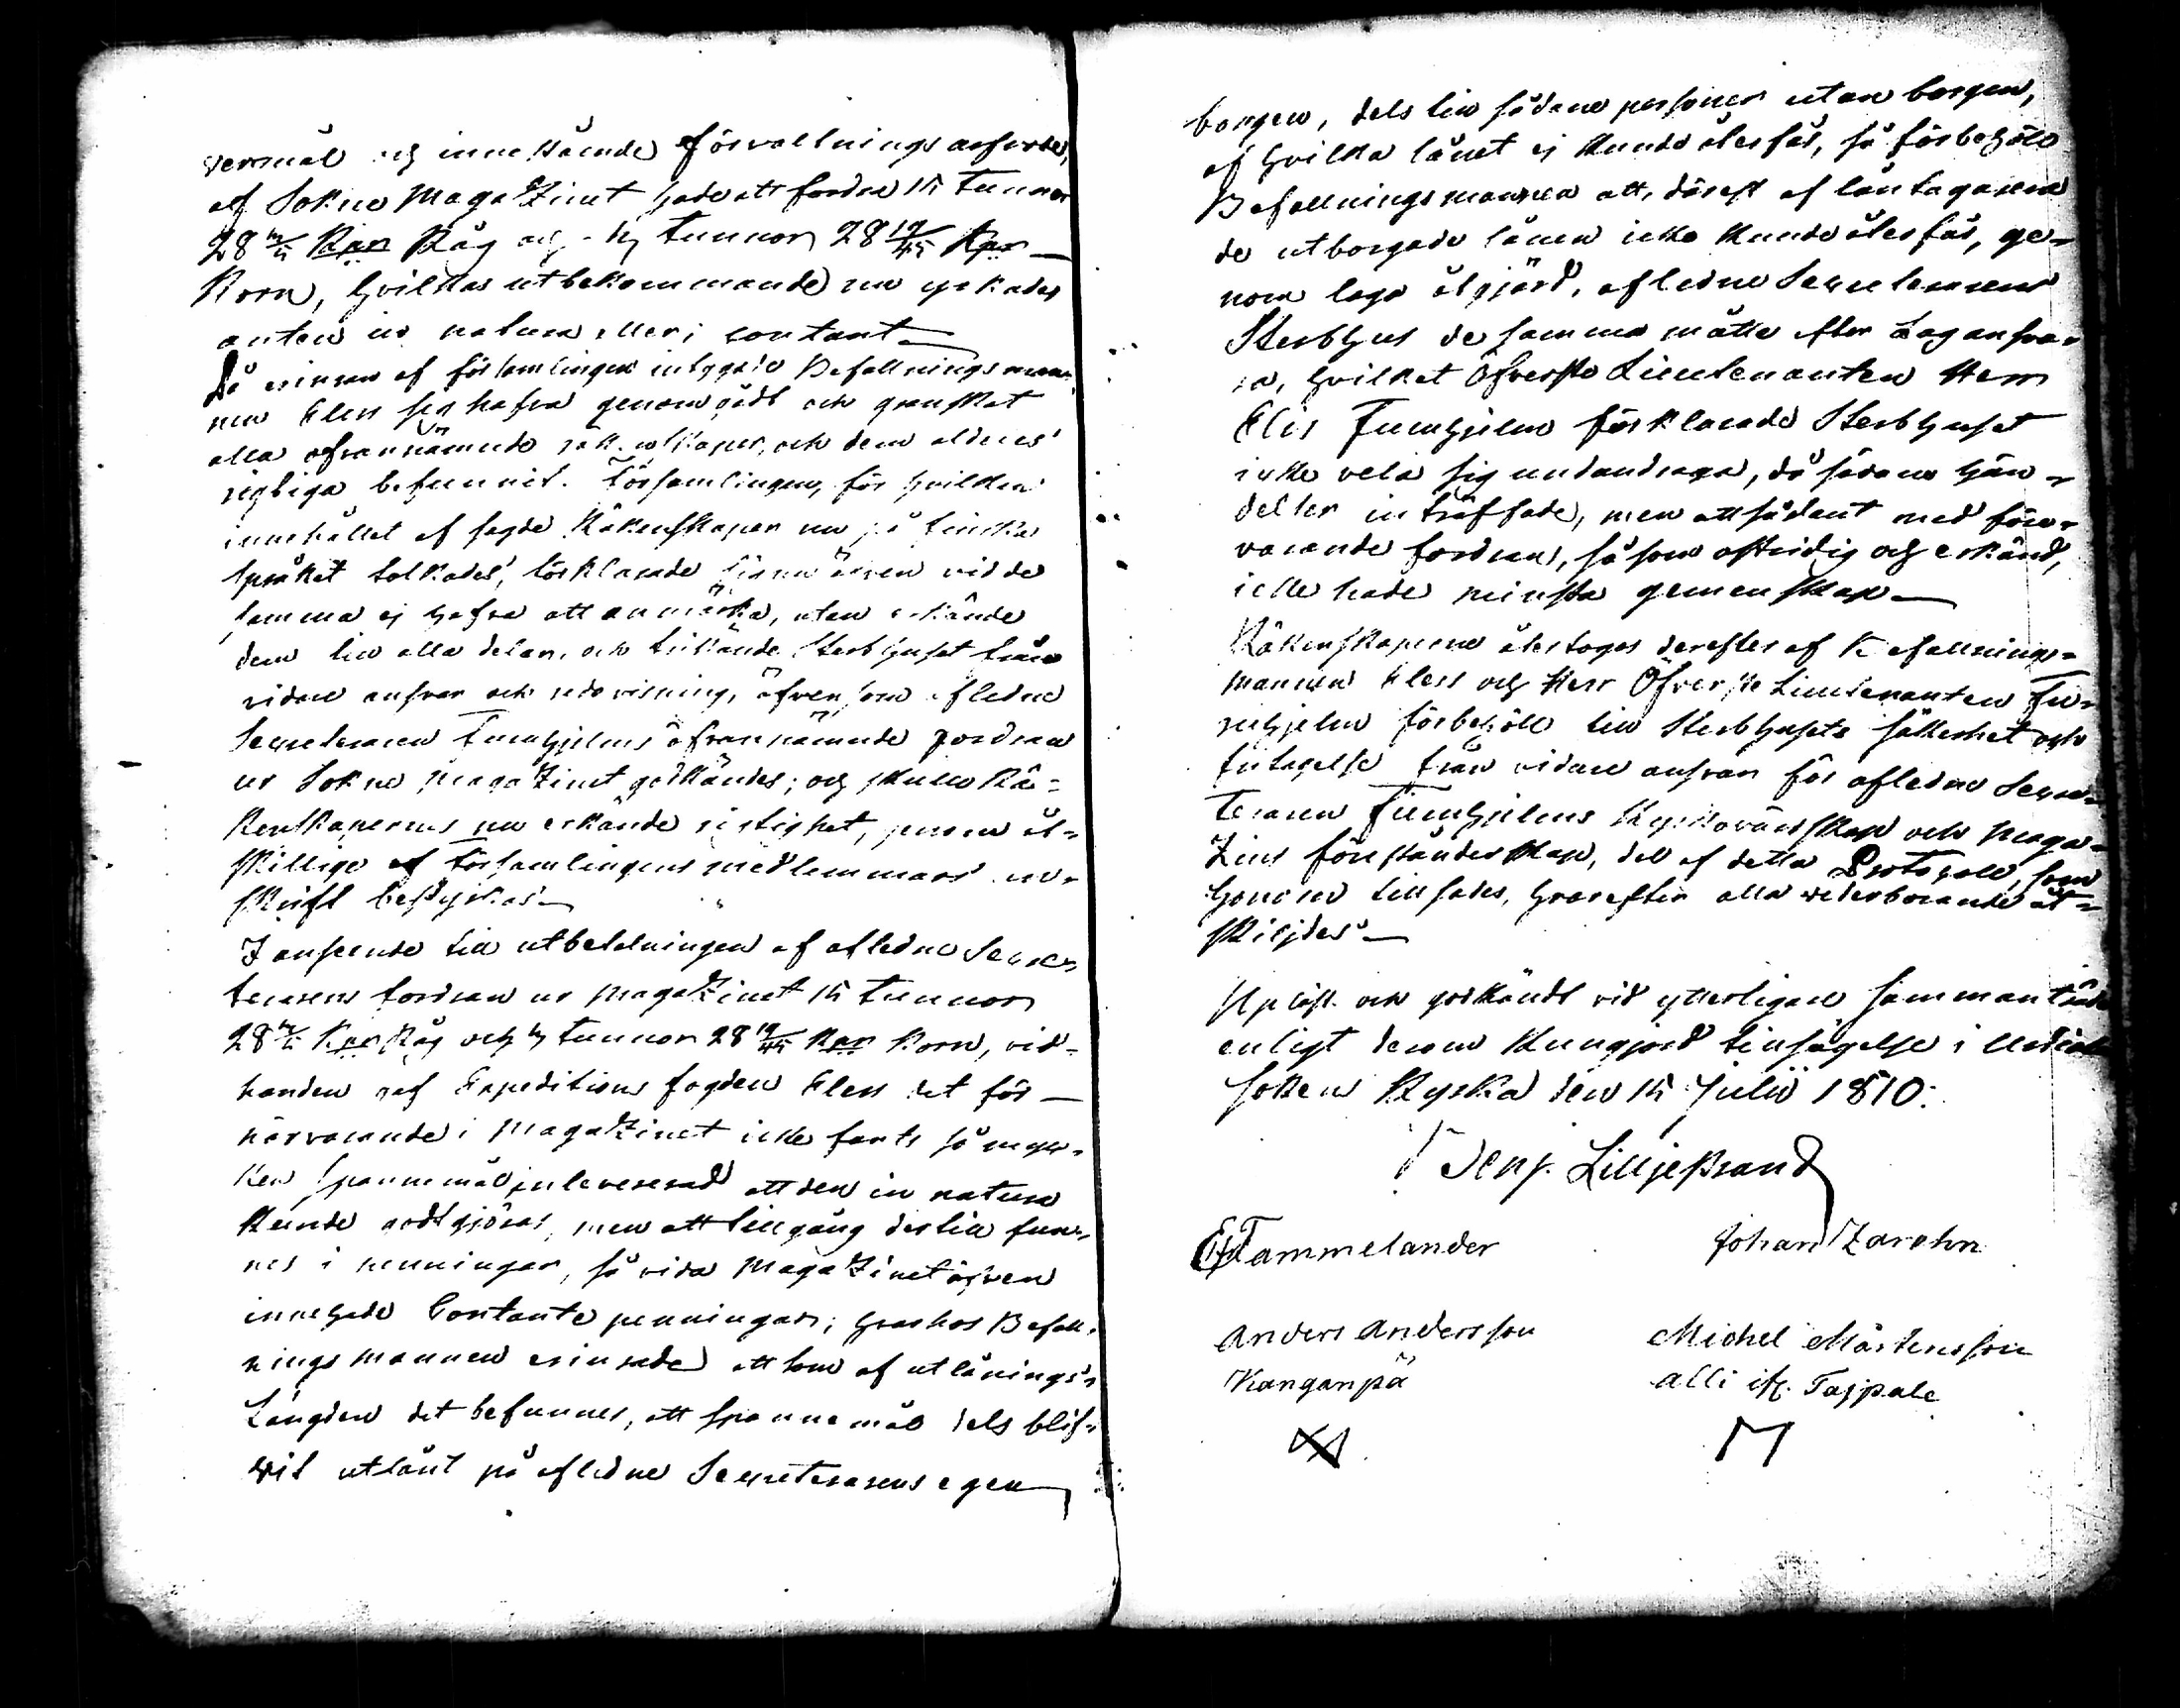 vensmål och innestående förvaltnings arfvode,
af Sokne Magatzinet hade att fordra 15 Tunnor
28 Kpr Råg och tunnor 28 19/45 Kpr
Korn, hvilkas utbekommande nu yrkades
anten in natura eller i contant
På erinran af församlingen intygade Befallningsman-
nen Eless sig hafva genomgådt och granskat
alla ofvannämnde räkenskaper, och dem aldeles
rigtiga befunnit. Församlingen, för hvilken
innehållet af sagde Räkenskaper nu på finska
språket tolkades, förklarade sig nu äfven vid de
samma ej hafva att anmärka, utan erkände
dem till alla delar, och frikände Sterbhuset från
vidare ansvar och redovisning, äfven som afledne
Secreteraren Furuhjelms ofvannämnde fordran
ur Sokne Magatzinet godkändes; och skulle Rä-
kenskapernes nu erkände rigtighet, genom åt-
skillige af Församlingens medlemmars un-
skrift bestyrkas
I anseende till utbetalningen af afledne Secre-
terarens fordran ur Magatzinet 15 Tunnor
28 Kpr Råg och tunnor 28 19/45 Kpr Korn, vid-
handen gaf Expeditions fogden Eless det för
närvarande i Magatzinet icke fants så myc-
ken Spannemål inlevererad att den in natura
kunde godtgöras, men att tillgång dertill fun-
nes i penningar, så vida Magatzinet äfven
innehade Contante penningar; hvarhos Befall-
ningsmannen erinrade att som af utlånings-
Längden det befunnes, att spannemål dels blif-
vit utlånt på afledne Secreterarens egen
borgen, dels till sådane personer utan borgen,
af hvilka lånet ej kunde återfås, så förbehöll
Befallningsmannen att, därest af låntagarena
de utborgade lånen icke kunde återfås, ge-
nom laga åtgjärd, afledne Secreterarens
Sterbhus de samma måtte efter Lag ansva-
ra, hvilket Öfverste Lieutenanten Herr
Elis Furuhjelm förklarade Sterbhuset
icke vela sig undandraga, då sådane hän-
delser inträffade, men att sådant med före-
varande fordran, såsom ostridig och erkänd,
icke hade minsta gemenskap
Räkenskaperne återtogos derefter af Befallnings-
mannen Eless och Herr Öfverste Lieutenanten Fu-
ruhjelm förbehöll till Sterbhusets säkerhet och
fritagelse från vidare ansvar för afledne Secre-
teraren Furuhjelms Kyrkovärdskap och Maga-
zins föreståndarskap, del af detta Protocoll, som
honom tillsades, hvarefter alla vederborande åt-
skiljdes
Upläst och godkändt vid ytterligare sammanträde
enligt derom kungjord tillsägelse i Urdiala
Sockens Kyrka den 15 Julii 1810.
Benj. Lilljestrand
Tammelander Johan Zarohn
Anders Andersson Michel Mårtensson
Kanganpä Alli ifr. Tajpale